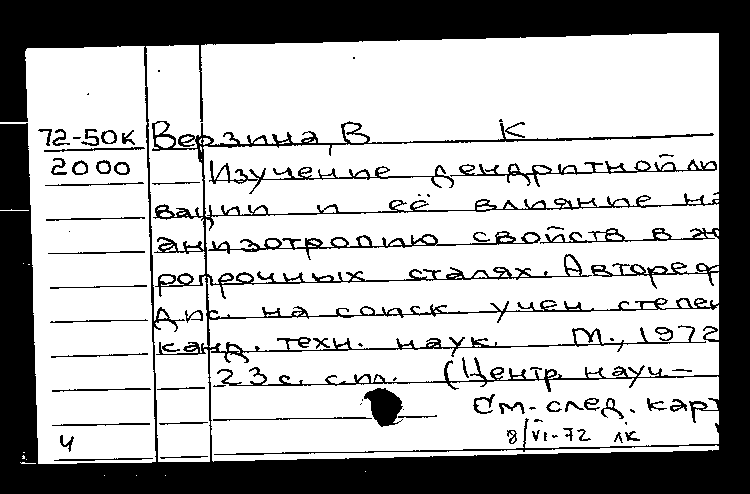 72-50к Верзина, В К
2000 Изучение дендритной ли
вации и её влияние на
анизотропию свойств в жа
ропрочных сталях. Автореф
дис. на соиск. учен. степен
канд. техн. наук. М., 1972
23 с. с ил. (Центр. науч-
См. след. карт
4 8/VI-72 ЛК